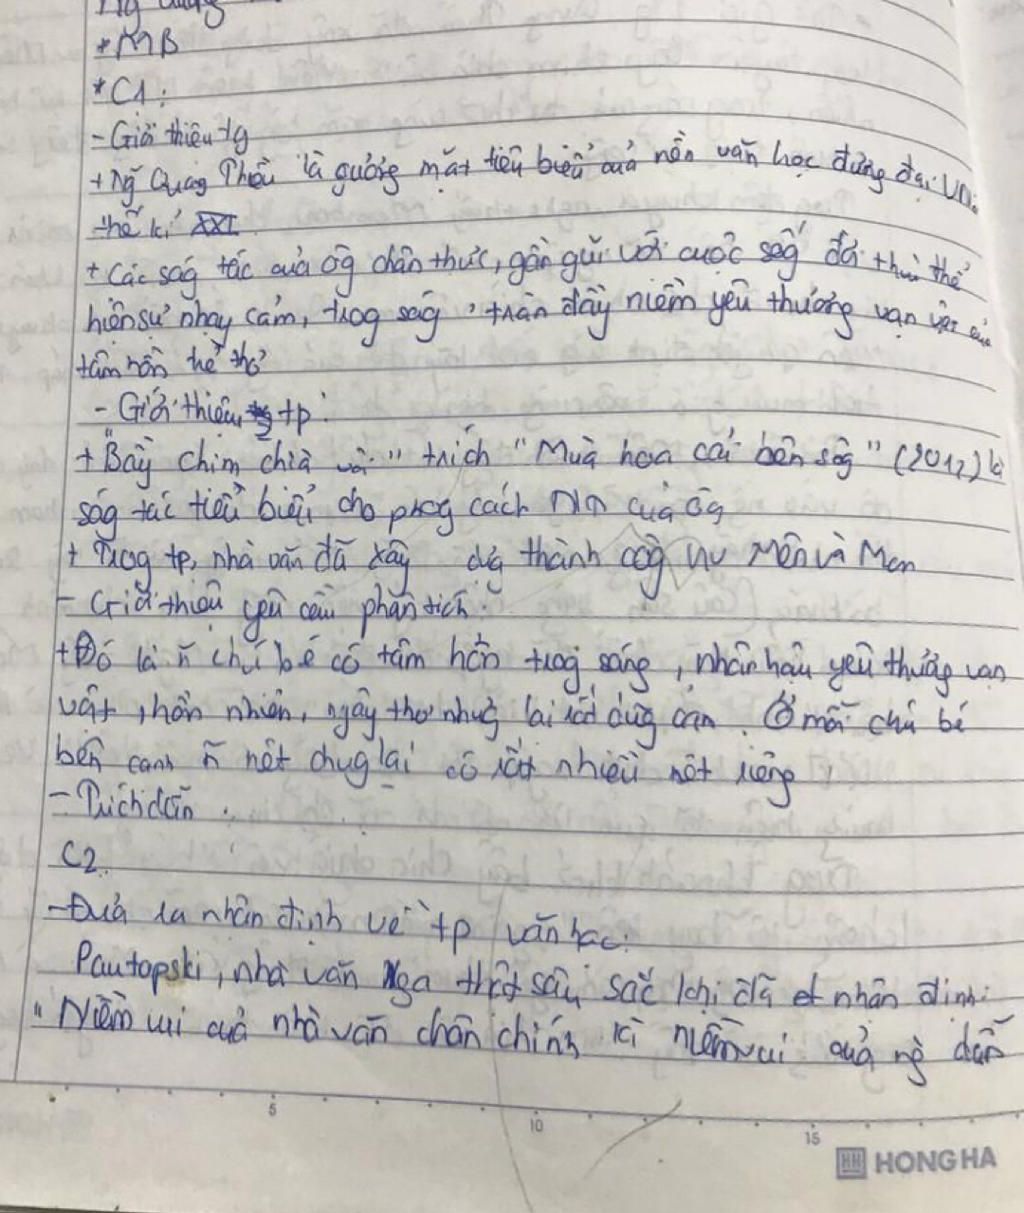 * MB
* C1:
- Giới thiệu tg
+ Ng Quag Thiều là gưởng mặt tiêu biểu củả nền văn học đưởng đại VN.
thế kỉ XXI.
+ Các ság tác của ôg chân thực, gần gũi với cuộc sốg đời thườ thể
hiện sự nhạy cảm, trog ság, tràn đầy niềm yêu thương vạn vật của
tâm hồn
- Giới thiệu tp:
+ "Bầy chim chìa vôi" trích "Mùa hoa cải bên sôg" (2012) là
ság tác tiêu biểu cho phog cách NT của ôg
+ Trog tp, nhà văn đã xây dựg thành côg nv Mên và Mon
- Giới thiệu yêu cầu phân tích:
+ Đó là ~n chú bé có tâm hồn trog sáng, nhân hậu yêu thương vạn
vật, hồn nhiên, ngây thơ nhưg lại rất dũg cảm. Ở mỗi chú bé
bên cạnh ~n nét chug lại có rất nhiều nét riêng
- Trích dẫn:
C2.
- Đưa ra nhận định về tp văn học:
Pautopski, nhà văn Nga thật sâu sắc khi đã nhận định:
"Niềm vui của nhà văn chân chính là niềm vui của ng dẫn
5 10 15
HH HONG HA